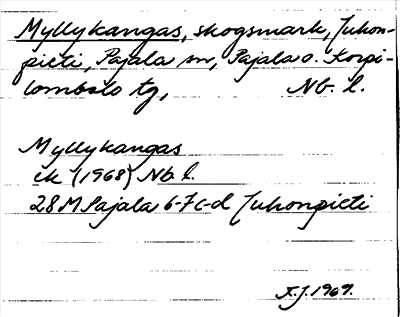 Myllykangas, skogsmark, Juhon-
pieti, Pajala sn, Pajala o. Korpi-
lombolo tg, Nb. l.
Myllykangas
ek (1968) Nb l.
28M Pajala 6-7 c-d Juhonpieti
F.J. 1969.